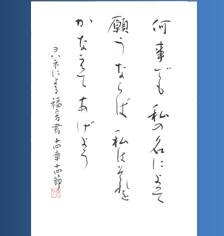 何事でも 私の名によって
願うならば 私はそれを
かなえてあげよう
ヨハネによる福音書 十四章十四節